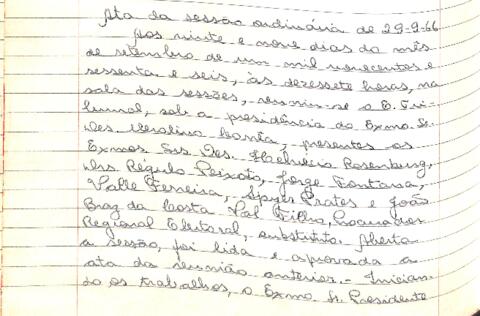 Ata da sessão ordinária de 29-9-66
Aos vinte e nove dias do mês
de setembro de um mil novecentos e
sessenta e seis, às dezessete horas, na
sala das sessões, reuniu-se o E. Tri-
bunal, sob a presidência do Exmo. Sr.
Des. Merolino Corrêa, presentes os
Exmos Srs Des. Helvécio Rosenburg,
Drs Régulo Peixoto, Jorge Fontana,
Valle Ferreira, Prates e João
Braz da Costa Val Filho, Procurador
Regional Eleitoral, substituto. Aberta
a sessão, foi lida e aprovada a
ata da reunião anterior. - Inician-
do os trabalhos, o Exmo Sr. Presidente